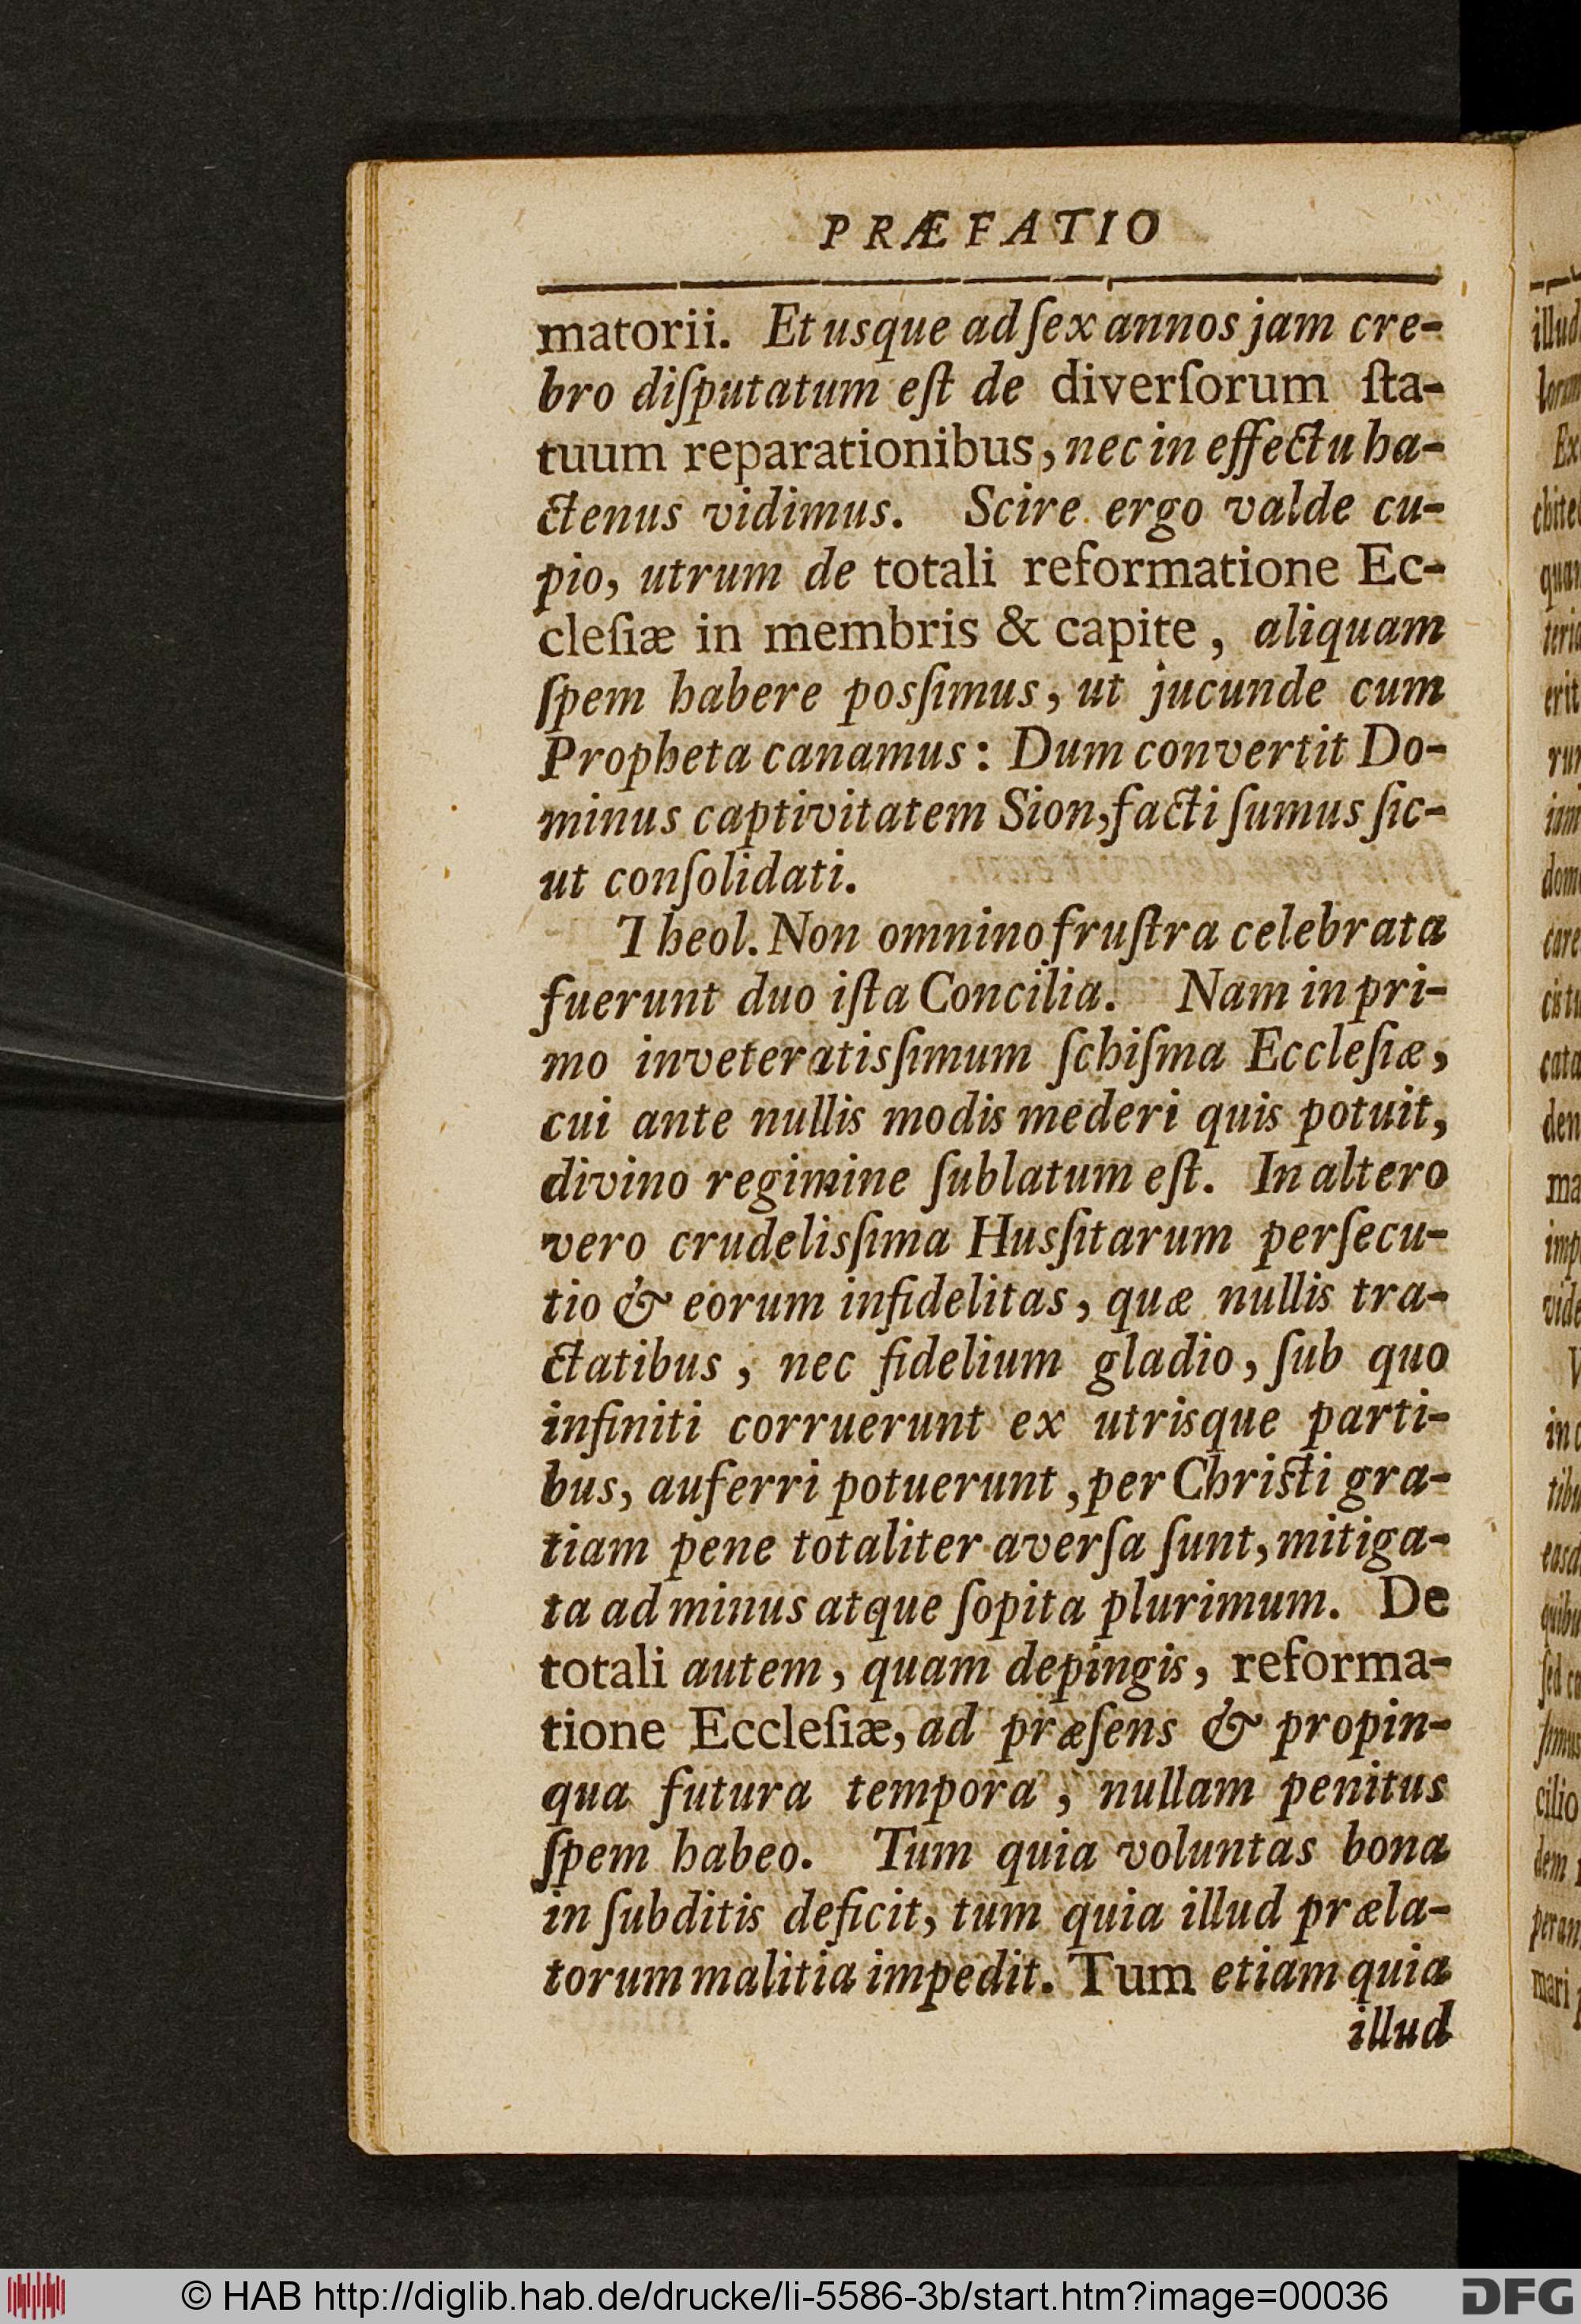 PRÆFATIO
matorii. Et usque ad ſex annos jam cre-
bro diſputatum eſt de diverſorum ſta-
tuum reparationibus, nec in effectu ha-
ctenus vidimus. Scire ergo valde cu-
pio, utrum de totali reformatione Ec-
cleſiæ in membris & capite, aliquam
ſpem habere posſimus, ut jucunde cum
Propheta canamus: Dum convertit Do-
minus captivitatem Sion, facti ſumus ſic-
ut conſolidati.
Theol. Non omnino fruſtra celebrata
fuerunt duo iſta Concilia. Nam in pri-
mo inveteratisſimum ſchiſma Eccleſiæ,
cui ante nullis modis mederi quis potuit,
divino regimine ſublatum eſt. In altero
vero crudelisſima Husſitarum perſecu-
tio & eorum infidelitas, quæ nullis tra-
ctatibus, nec fidelium gladio, ſub quo
infiniti corruerunt ex utrisque parti-
bus, auferri potuerunt, per Chriſti gra-
tiam pene totaliter averſa ſunt, mitiga-
ta ad minus atque ſopita plurimum. De
totali autem, quam depingis, reforma-
tione Eccleſiæ, ad præſens & propin-
qua futura tempora, nullam penitus
ſpem habeo. Tum quia voluntas bona
in ſubditis deficit, tum quia illud præla-
torum malitia impedit. Tum etiam quia
illud
illud
Ex
quan
erit
den
ma
© HAB http://diglib.hab.de/drucke/li-5586-3b/start.htm?image=00036
DFG